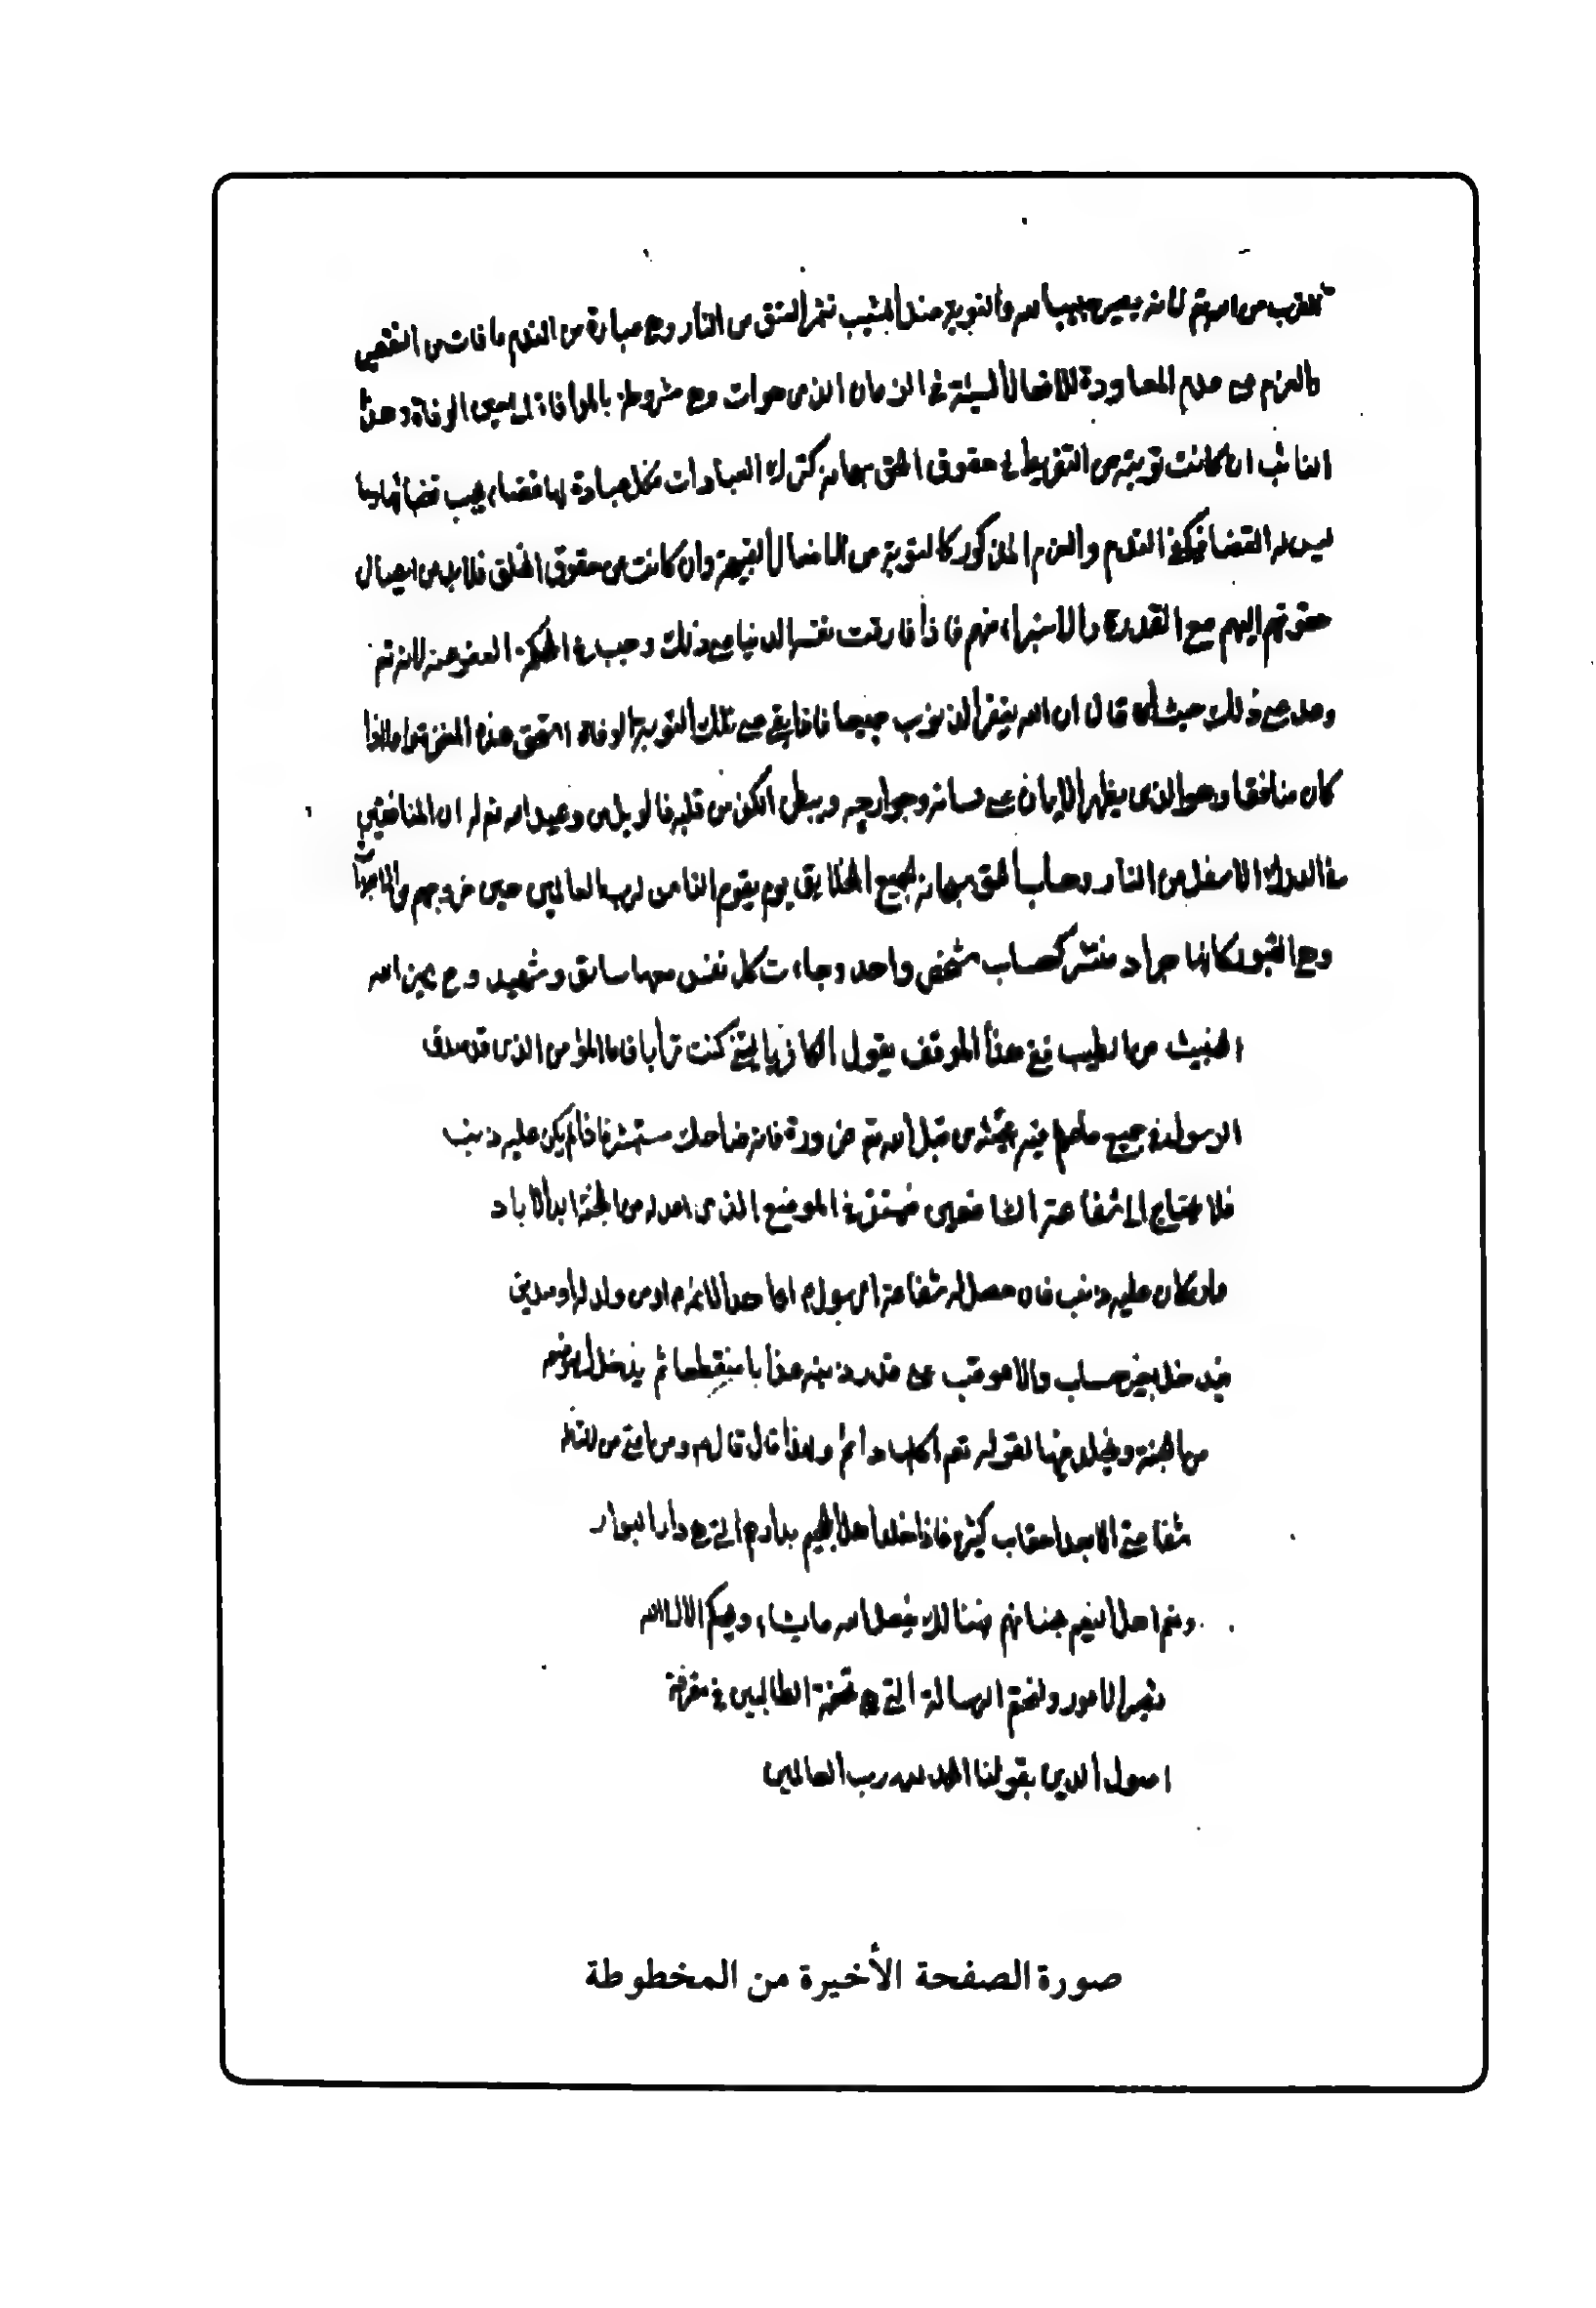 القرب من الله تم لانه يصير حبيبا لله والتوبة عند المشيب تثمر العتق من النار وهي عبارة عن الندم ما فات من التقصير
والعزم على عدم المعاودة للافعال السيئة في الزمان الذي هو ات وهي مشروطة بالموافاة الى حين الوفاة وهذا
التائب ان كانت توبته من التفريط في حقوق الحق سبحانه كترك العبادات فكل عبادة لها قضاء يجب قضائها وما
ليس له القضا فيكفي الندم والعزم المذكور كالتوبة من الافعال القبيحة وان كانت من حقوق الخلق فلابد من ايصال
حقوقهم اليهم مع القدرة والاستبراء منهم فاذا فارقت نفسه الدنيا على ذلك وجب في الحكمة العفو عنه لانه تم
وعد على ذلك حيث قال ان الله يغفر الذنوب جميعا فاذا بقي على تلك التوبة الوفاة استحق هذه المغفرة واما اذا
كان منافقا وهو الذي يظهر الايمان على لسانه وجوارحه ويبطن الكفر في قلبه فالويل من وعيد الله تم له ان المنافقين
في الدرك الاسفل من النار وحساب الحق سبحانه لجميع الخلايق يوم يقوم الناس لرب العالمين حين خروجهم من الاجداث
وهي القبور كانها جراد منتشر كحساب شخص واحد وجاءت كل نفس معها سائق وشهيد وح يميز الله
الخبيث من الطيب ففي هذا الموقف يقول الكافر يا ليتني كنت ترابا فاما المؤمن الذي قد صدق
الرسول في جميع ما علم مجيئه من قبل الله تم ضرورة فانه ضاحك مستبشر فاذا لم يكن عليه ذنب
فلا يحتاج الى شفاعة الشافعين فيستقر في الموضع الذي اعد له من الجنة ابد الاباد
وان كان عليه ذنب فان حصل له شفاعة الرسول او احد الائمة او من ولد له او صديق
فيدخل بغير حساب والا عوقب على قدر ذنبه عذابا منقطعا ثم يدخل موضعه
من الجنة ويخلد فيها لقوله تم اكلها دائم ولهذا قال قال ومن امتي من لا تناله
شفاعتي الا بعد احقاب كثيرة فاذا دخل اهل الجحيم بدارهم التي هي دار البوار
ونعم اهل النعيم جناتهم هنالك يفعل الله ما يشاء ويحكم الا الى الله
تصير الامور ولنختم الرسالة التي هي تحفة الطالبين في معرفة
اصول الدين بقولنا الحمد لله رب العالمين
صورة الصفحة الأخيرة من المخطوطة